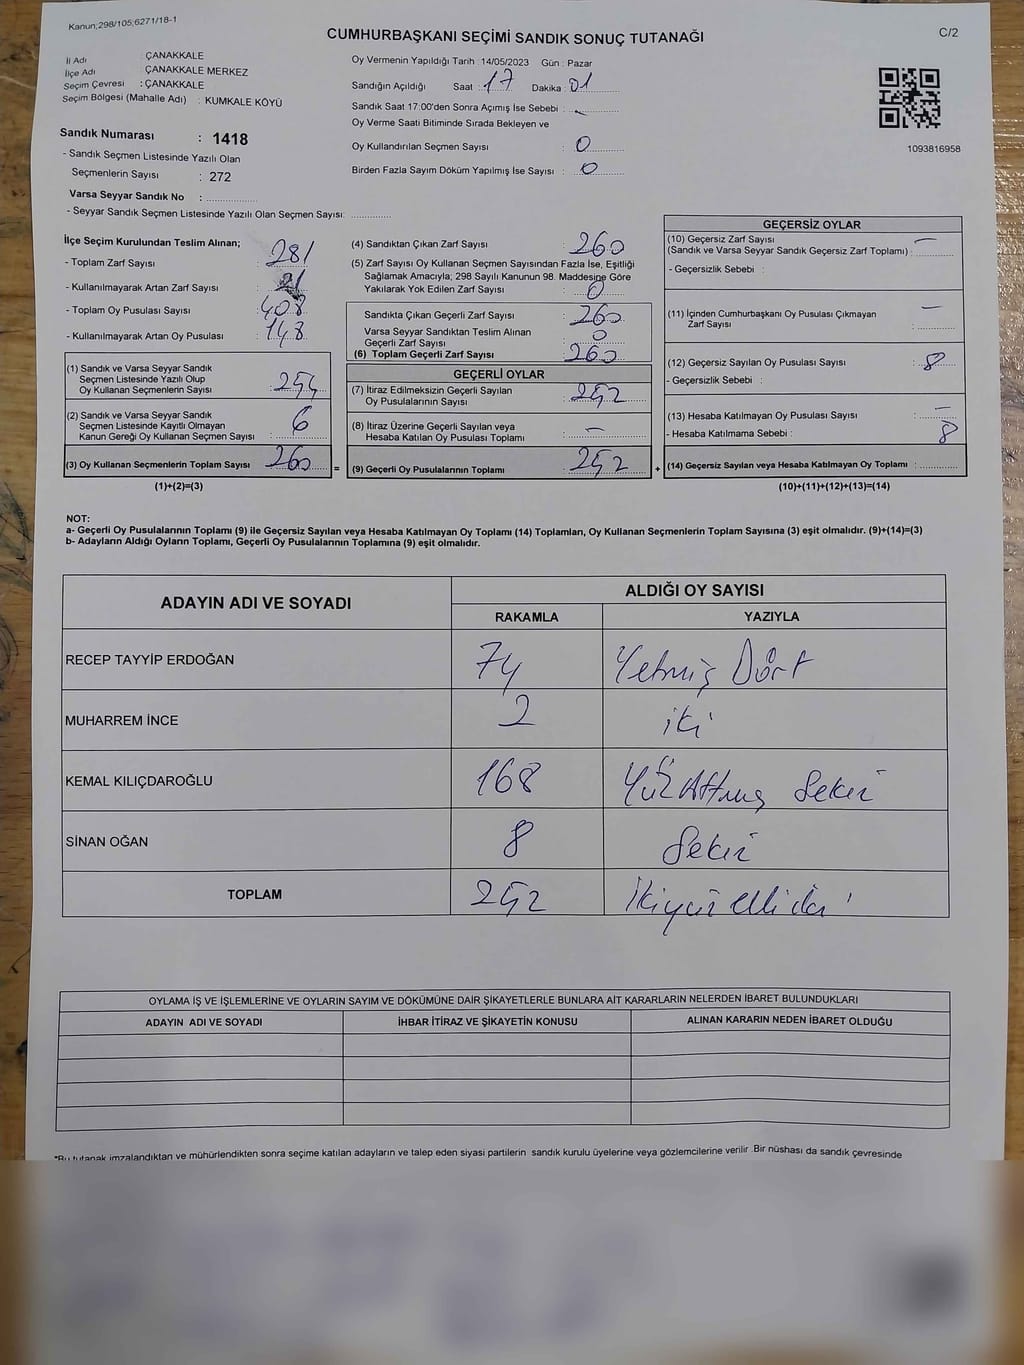 Kanun;298/105;6271/18-1
C/2
CUMHURBAŞKANI SEÇİMİ SANDIK SONUÇ TUTANAĞI
İl Adı : ÇANAKKALE
İlçe Adı : ÇANAKKALE MERKEZ
Seçim Çevresi : ÇANAKKALE
Seçim Bölgesi (Mahalle Adı) : KUMKALE KÖYÜ
Sandık Numarası : 1418
- Sandık Seçmen Listesinde Yazılı Olan
Seçmenlerin Sayısı : 272
Varsa Seyyar Sandık No :
- Seyyar Sandık Seçmen Listesinde Yazılı Olan Seçmen Sayısı:
Oy Vermenin Yapıldığı Tarih : 14/05/2023 Gün : Pazar
Sandığın Açıldığı Saat : 17 Dakika : 01
Sandık Saat 17:00'den Sonra Açımış İse Sebebi :
Oy Verme Saati Bitiminde Sırada Bekleyen ve
Oy Kullandırılan Seçmen Sayısı : 0
Birden Fazla Sayım Döküm Yapılmış İse Sayısı : 0
1093816958
İlçe Seçim Kurulundan Teslim Alınan;
- Toplam Zarf Sayısı : 281
- Kullanılmayarak Artan Zarf Sayısı : 21
- Toplam Oy Pusulası Sayısı : 408
- Kullanılmayarak Artan Oy Pusulası : 148
(1) Sandık ve Varsa Seyyar Sandık
Seçmen Listesinde Yazılı Olup
Oy Kullanan Seçmenlerin Sayısı : 254
(2) Sandık ve Varsa Seyyar Sandık
Seçmen Listesinde Kayıtlı Olmayan
Kanun Gereği Oy Kullanan Seçmen Sayısı : 6
(3) Oy Kullanan Seçmenlerin Toplam Sayısı : 260
(1)+(2)=(3)
=
(4) Sandıktan Çıkan Zarf Sayısı : 260
(5) Zarf Sayısı Oy Kullanan Seçmen Sayısından Fazla İse, Eşitliği
Sağlamak Amacıyla; 298 Sayılı Kanunun 98. Maddesine Göre
Yakılarak Yok Edilen Zarf Sayısı : 0
Sandıkta Çıkan Geçerli Zarf Sayısı : 260
Varsa Seyyar Sandıktan Teslim Alınan
Geçerli Zarf Sayısı : 0
(6) Toplam Geçerli Zarf Sayısı : 260
GEÇERLİ OYLAR
(7) İtiraz Edilmeksizin Geçerli Sayılan
Oy Pusulalarının Sayısı : 252
(8) İtiraz Üzerine Geçerli Sayılan veya
Hesaba Katılan Oy Pusulası Toplamı : –
(9) Geçerli Oy Pusulalarının Toplamı : 252
+
GEÇERSİZ OYLAR
(10) Geçersiz Zarf Sayısı –
(Sandık ve Varsa Seyyar Sandık Geçersiz Zarf Toplamı) :
- Geçersizlik Sebebi :
(11) İçinden Cumhurbaşkanı Oy Pusulası Çıkmayan –
Zarf Sayısı :
(12) Geçersiz Sayılan Oy Pusulası Sayısı : 8
- Geçersizlik Sebebi :
(13) Hesaba Katılmayan Oy Pusulası Sayısı : –
- Hesaba Katılmama Sebebi :
8
(14) Geçersiz Sayılan veya Hesaba Katılmayan Oy Toplamı :
(10)+(11)+(12)+(13)=(14)
NOT:
a- Geçerli Oy Pusulalarının Toplamı (9) ile Geçersiz Sayılan veya Hesaba Katılmayan Oy Toplamı (14) Toplamları, Oy Kullanan Seçmenlerin Toplam Sayısına (3) eşit olmalıdır. (9)+(14)=(3)
b- Adayların Aldığı Oyların Toplamı, Geçerli Oy Pusulalarının Toplamına (9) eşit olmalıdır.
ADAYIN ADI VE SOYADI ALDIĞI OY SAYISI
RAKAMLA YAZIYLA
RECEP TAYYİP ERDOĞAN 74 Yetmiş Dört
MUHARREM İNCE 2 iki
KEMAL KILIÇDAROĞLU 168 Yüz Altmış Sekiz
SİNAN OĞAN 8 Sekiz
TOPLAM 252 İkiyüz elli iki
OYLAMA İŞ VE İŞLEMLERİNE VE OYLARIN SAYIM VE DÖKÜMÜNE DAİR ŞİKAYETLERLE BUNLARA AİT KARARLARIN NELERDEN İBARET BULUNDUKLARI
ADAYIN ADI VE SOYADI İHBAR İTİRAZ VE ŞİKAYETİN KONUSU ALINAN KARARIN NEDEN İBARET OLDUĞU
*Bu tutanak imzalandıktan ve mühürlendikten sonra seçime katılan adayların ve talep eden siyasi partilerin sandık kurulu üyelerine veya gözlemcilerine verilir. Bir nüshası da sandık çevresinde